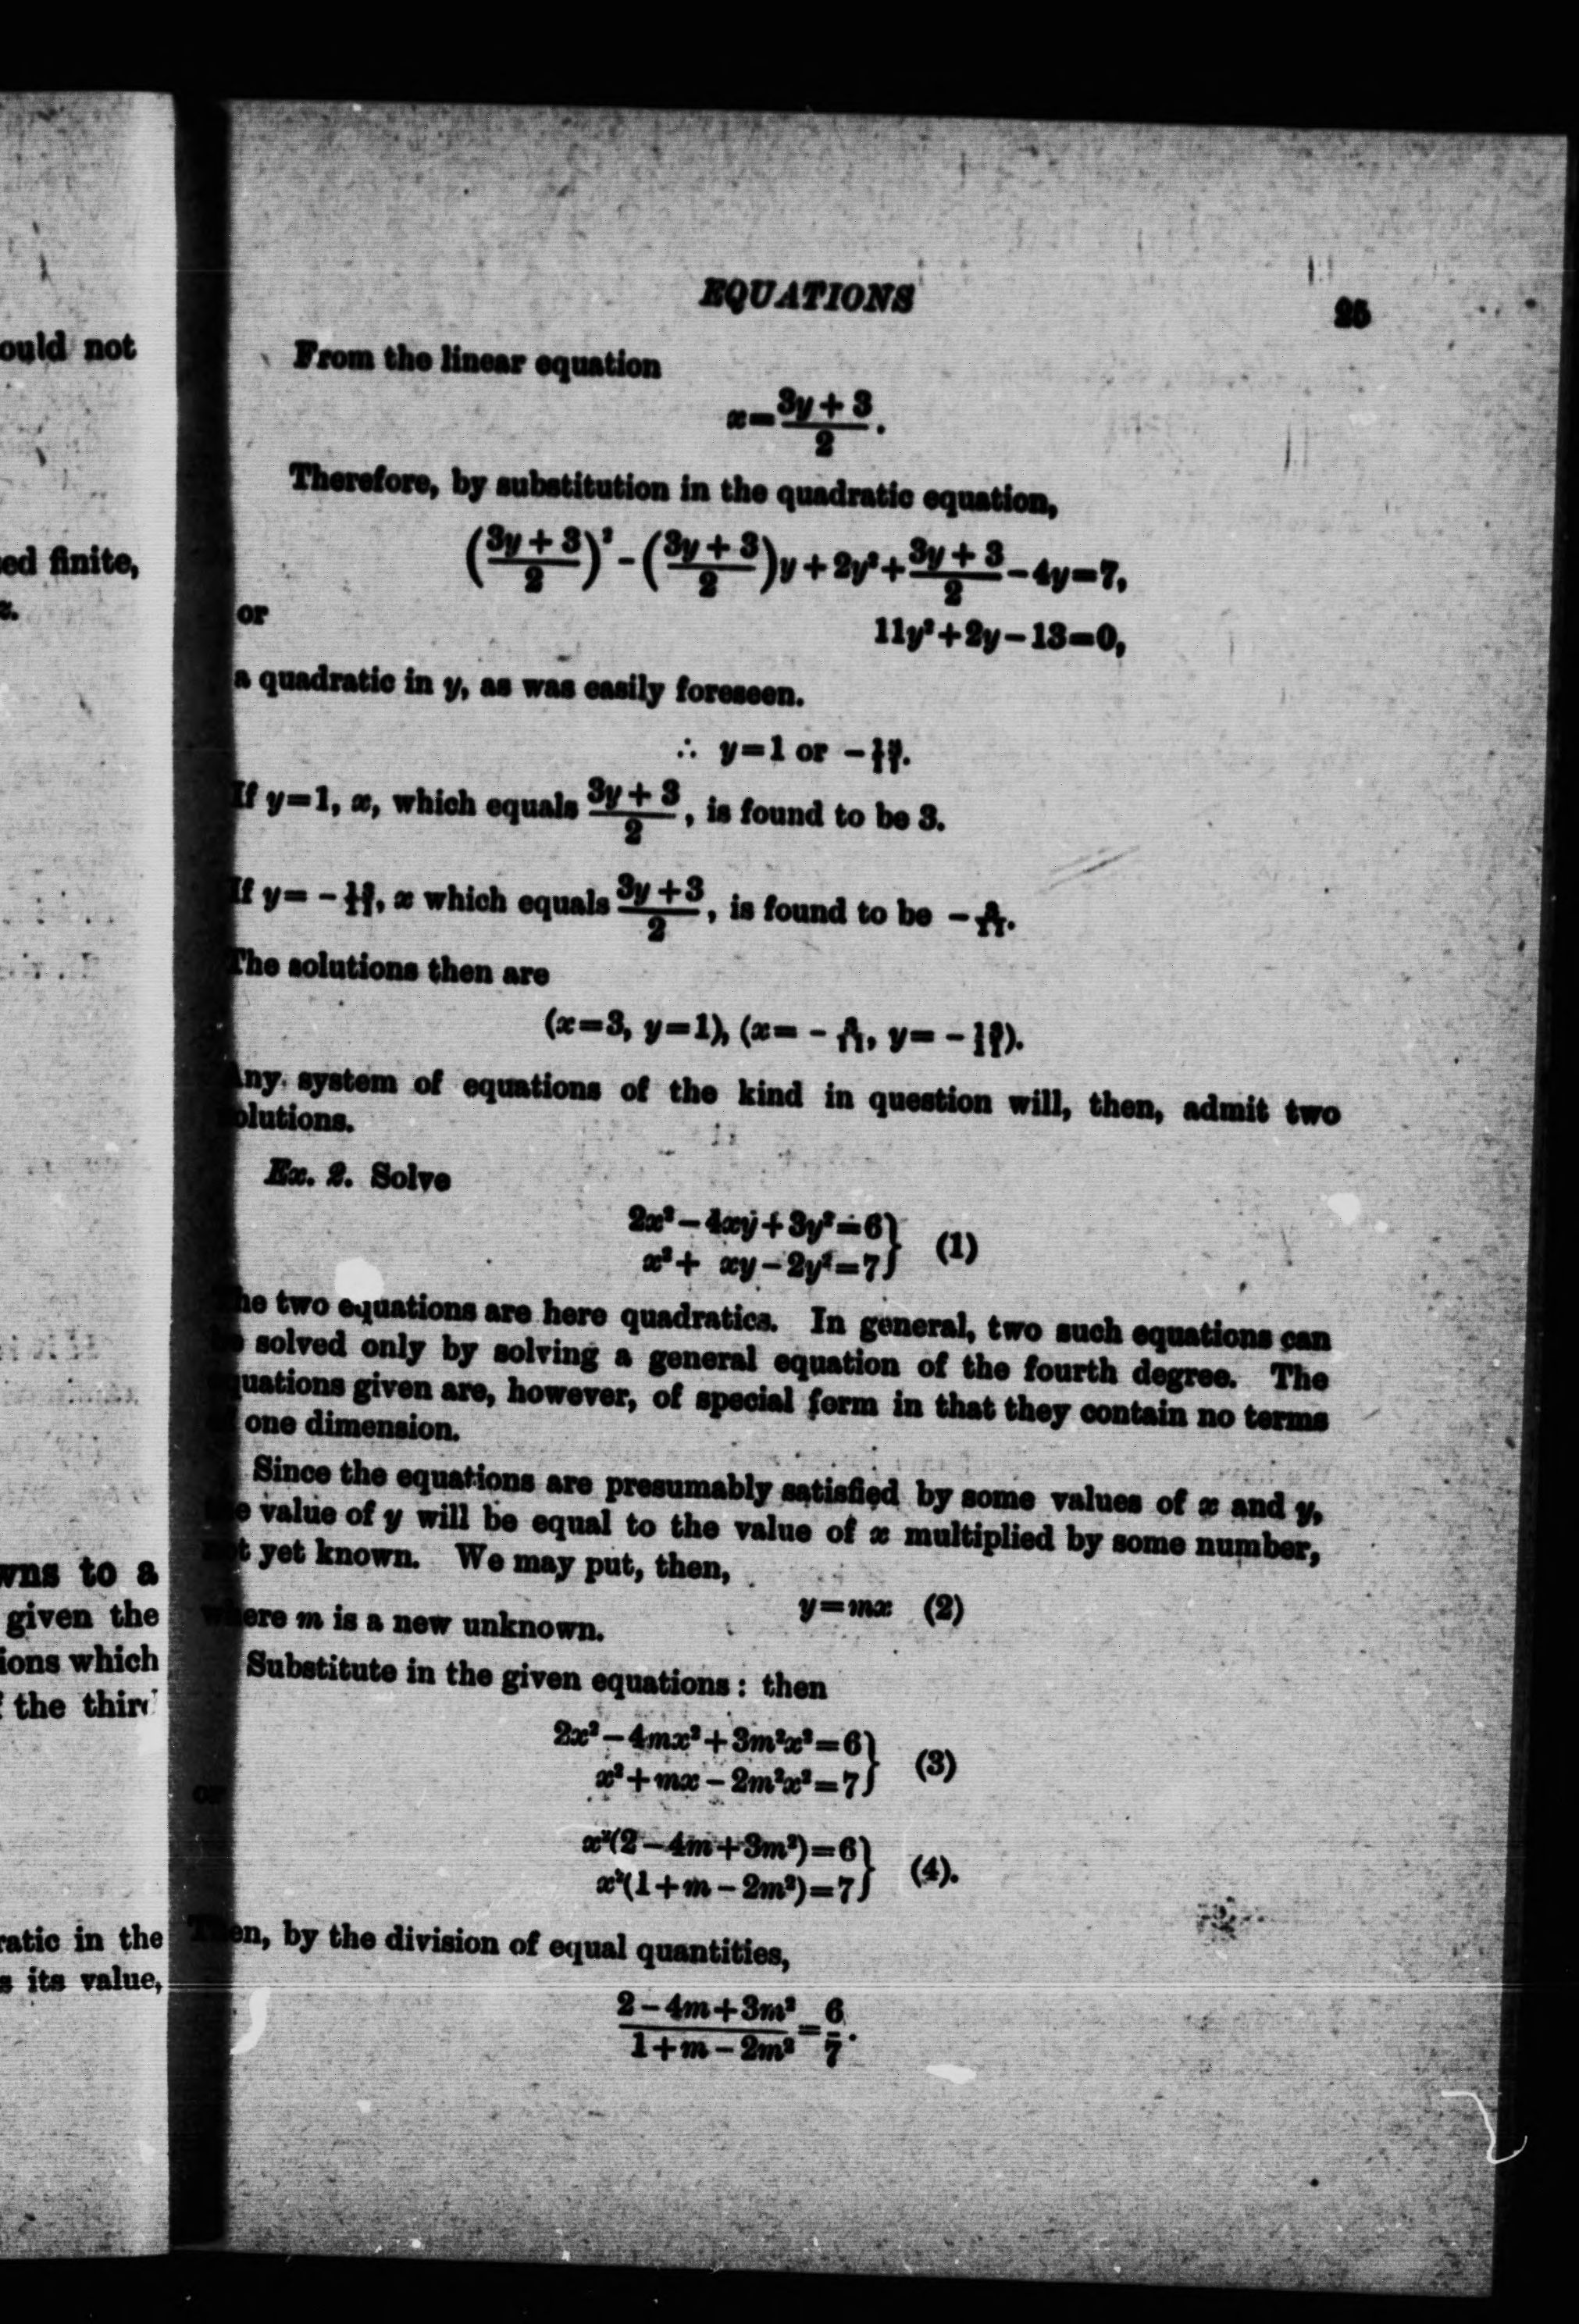 ould not
ed finite,
wns to a
given the
ions which
the third
ratic in the
s its value,
EQUATIONS 25
From the linear equation
x=(3y + 3)/2.
Therefore, by substitution in the quadratic equation,
((3y + 3)/2)² - ((3y + 3)/2)y + 2y² + (3y + 3)/2 - 4y=7,
or
11y²+2y-13=0,
a quadratic in y, as was easily foreseen.
∴ y=1 or -13/11.
If y=1, x, which equals (3y + 3)/2, is found to be 3.
If y= -13/11, x which equals (3y +3)/2, is found to be -3/11.
The solutions then are
(x=3, y=1), (x= -3/11, y= -13/11).
Any system of equations of the kind in question will, then, admit two
olutions.
Ex. 2. Solve
2x²-4xy+3y²=6
x²+ xy-2y²=7} (1)
he two equations are here quadratics. In general, two such equations can
solved only by solving a general equation of the fourth degree. The
quations given are, however, of special form in that they contain no terms
one dimension.
Since the equations are presumably satisfied by some values of x and y,
e value of y will be equal to the value of x multiplied by some number,
t yet known. We may put, then,
y=mx (2)
where m is a new unknown.
Substitute in the given equations: then
2x²-4mx²+3m²x²=6
x²+mx-2m²x²=7} (3)
or
x²(2-4m+3m²)=6
x²(1+m-2m²)=7} (4).
Then, by the division of equal quantities,
(2-4m+3m²)/(1+m-2m²)=6/7.